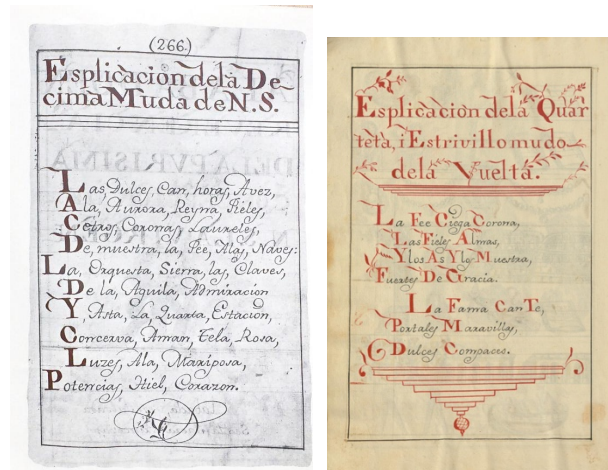 (266.)
Esplicacion dela De
cima Muda de N.S.
Las Dulces, Can, horas, Avez,
Ala, Aurora, Reyna, Fieles,
Cetros, Coronas, Laureles,
De, muestra, la, Fee, Alas, Naves:
La, Orquesta, Sierra, las, Claves,
De la, Aguila, Admiracion
Y, Asta, La, Quarta, Estacion,
Concerva, Aman, Tela, Rosa,
Luzes, Ala, Mariposa,
Potencias, Fiel, Corazon.
Esplicacion dela Quar
teta, i Estrivillo mudo
dela Vuelta.
La Fee Ciega Corona,
Las Fieles Almas,
Y los As Y lo Muestra,
Fuertes De Gracia.
La Fama Can Te,
Portales Maravillas,
Dulces Compacis.